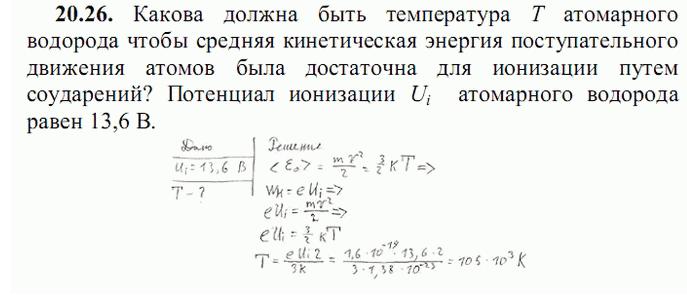 20.26. Какова должна быть температура T атомарного
водорода чтобы средняя кинетическая энергия поступательного
движения атомов была достаточна для ионизации путем
соударений? Потенциал ионизации Ui атомарного водорода
равен 13,6 В.
Дано
Ui = 13,6 В
T - ?
Решение
<ε₀> = mv²/2 = 3/2 kT =>
Wк = eUi =>
eUi = mv²/2 =>
eUi = 3/2 kT
T = eUi2/3k = 1,6·10⁻¹⁹·13,6·2/3·1,38·10⁻²³ = 105·10³ K